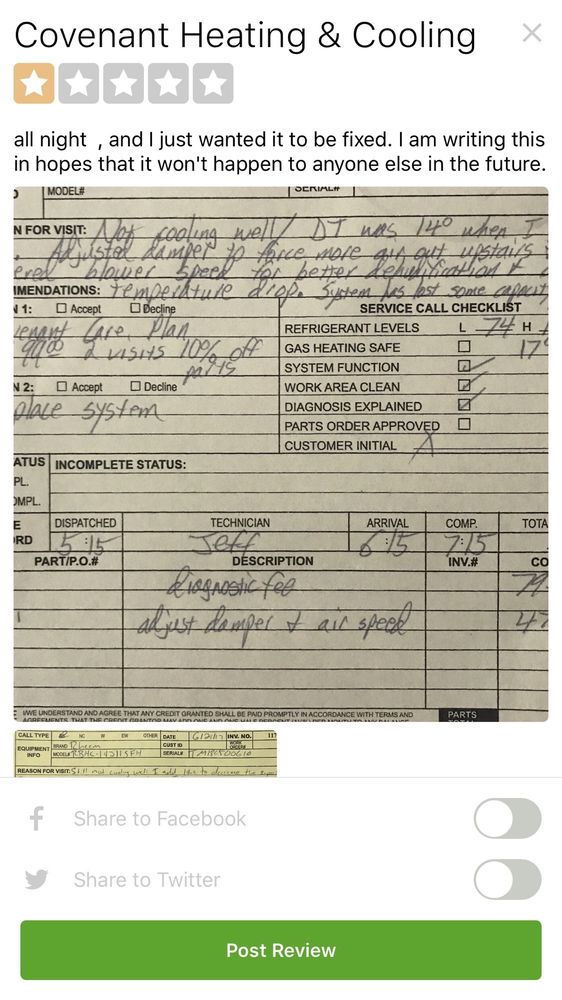 Covenant Heating & Cooling
all night , and I just wanted it to be fixed. I am writing this
in hopes that it won't happen to anyone else in the future.
MODEL#
SERIAL#
N FOR VISIT: Not cooling well/ DT was 14° when I
. Adjusted damper to force more air out upstairs
ered blower speed for better dehumification &
MENDATIONS: temperature drop. System has lost some capacit
1: Accept Decline
SERVICE CALL CHECKLIST
enant Care Plan
REFRIGERANT LEVELS L 74 H
99.00 2 visits 10% off
GAS HEATING SAFE 17°
parts
SYSTEM FUNCTION
N 2: Accept Decline
WORK AREA CLEAN
place system
DIAGNOSIS EXPLAINED
PARTS ORDER APPROVED
CUSTOMER INITIAL X
ATUS INCOMPLETE STATUS:
PL.
OMPL.
E DISPATCHED TECHNICIAN ARRIVAL COMP. TOTA
RD 5:15 Jeff 6:15 7:15
PART/P.O.# DESCRIPTION INV.# CO
diagnostic fee 79
adjust damper & air speed 47
I/WE UNDERSTAND AND AGREE THAT ANY CREDIT GRANTED SHALL BE PAID PROMPTLY IN ACCORDANCE WITH TERMS AND
PARTS
CALL TYPE NC W EW OTHER DATE 6/21/17 INV. NO. 117
EQUIPMENT INFO BRAND Rheem CUST ID WORK ORDER#
MODEL# SERIAL#
REASON FOR VISIT: Still not cooling well
Share to Facebook
Share to Twitter
Post Review